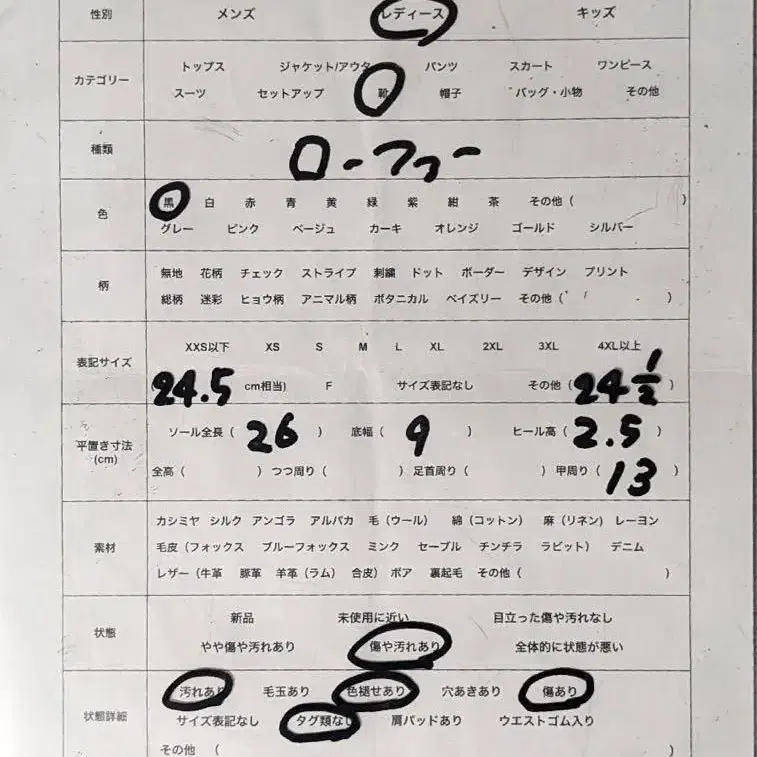 性別 メンズ レディース キッズ
カテゴリー トップス ジャケット/アウター パンツ スカート ワンピース
スーツ セットアップ 靴 帽子 バッグ・小物 その他
種類 ローファー
色 黒 白 赤 青 黄 緑 紫 紺 茶 その他 ( )
グレー ピンク ベージュ カーキ オレンジ ゴールド シルバー
柄 無地 花柄 チェック ストライプ 刺繍 ドット ボーダー デザイン プリント
総柄 迷彩 ヒョウ柄 アニマル柄 ボタニカル ペイズリー その他 ( )
表記サイズ XXS以下 XS S M L XL 2XL 3XL 4XL以上
24.5 cm相当) F サイズ表記なし その他 ( 24 1/2 )
平置き寸法 (cm) ソール全長 ( 26 ) 底幅 ( 9 ) ヒール高 ( 2.5 )
全高 ( ) つつ周り ( ) 足首周り ( ) 甲周り ( 13 )
素材 カシミヤ シルク アンゴラ アルパカ 毛 (ウール) 綿 (コットン) 麻 (リネン) レーヨン
毛皮 (フォックス ブルーフォックス ミンク セーブル チンチラ ラビット) デニム
レザー (牛革 豚革 羊革 (ラム) 合皮) ボア 裏起毛 その他 ( )
状態 新品 未使用に近い 目立った傷や汚れなし
やや傷や汚れあり 傷や汚れあり 全体的に状態が悪い
状態詳細 汚れあり 毛玉あり 色褪せあり 穴あきあり 傷あり
サイズ表記なし タグ類なし 肩パッドあり ウエストゴム入り
その他 ( )